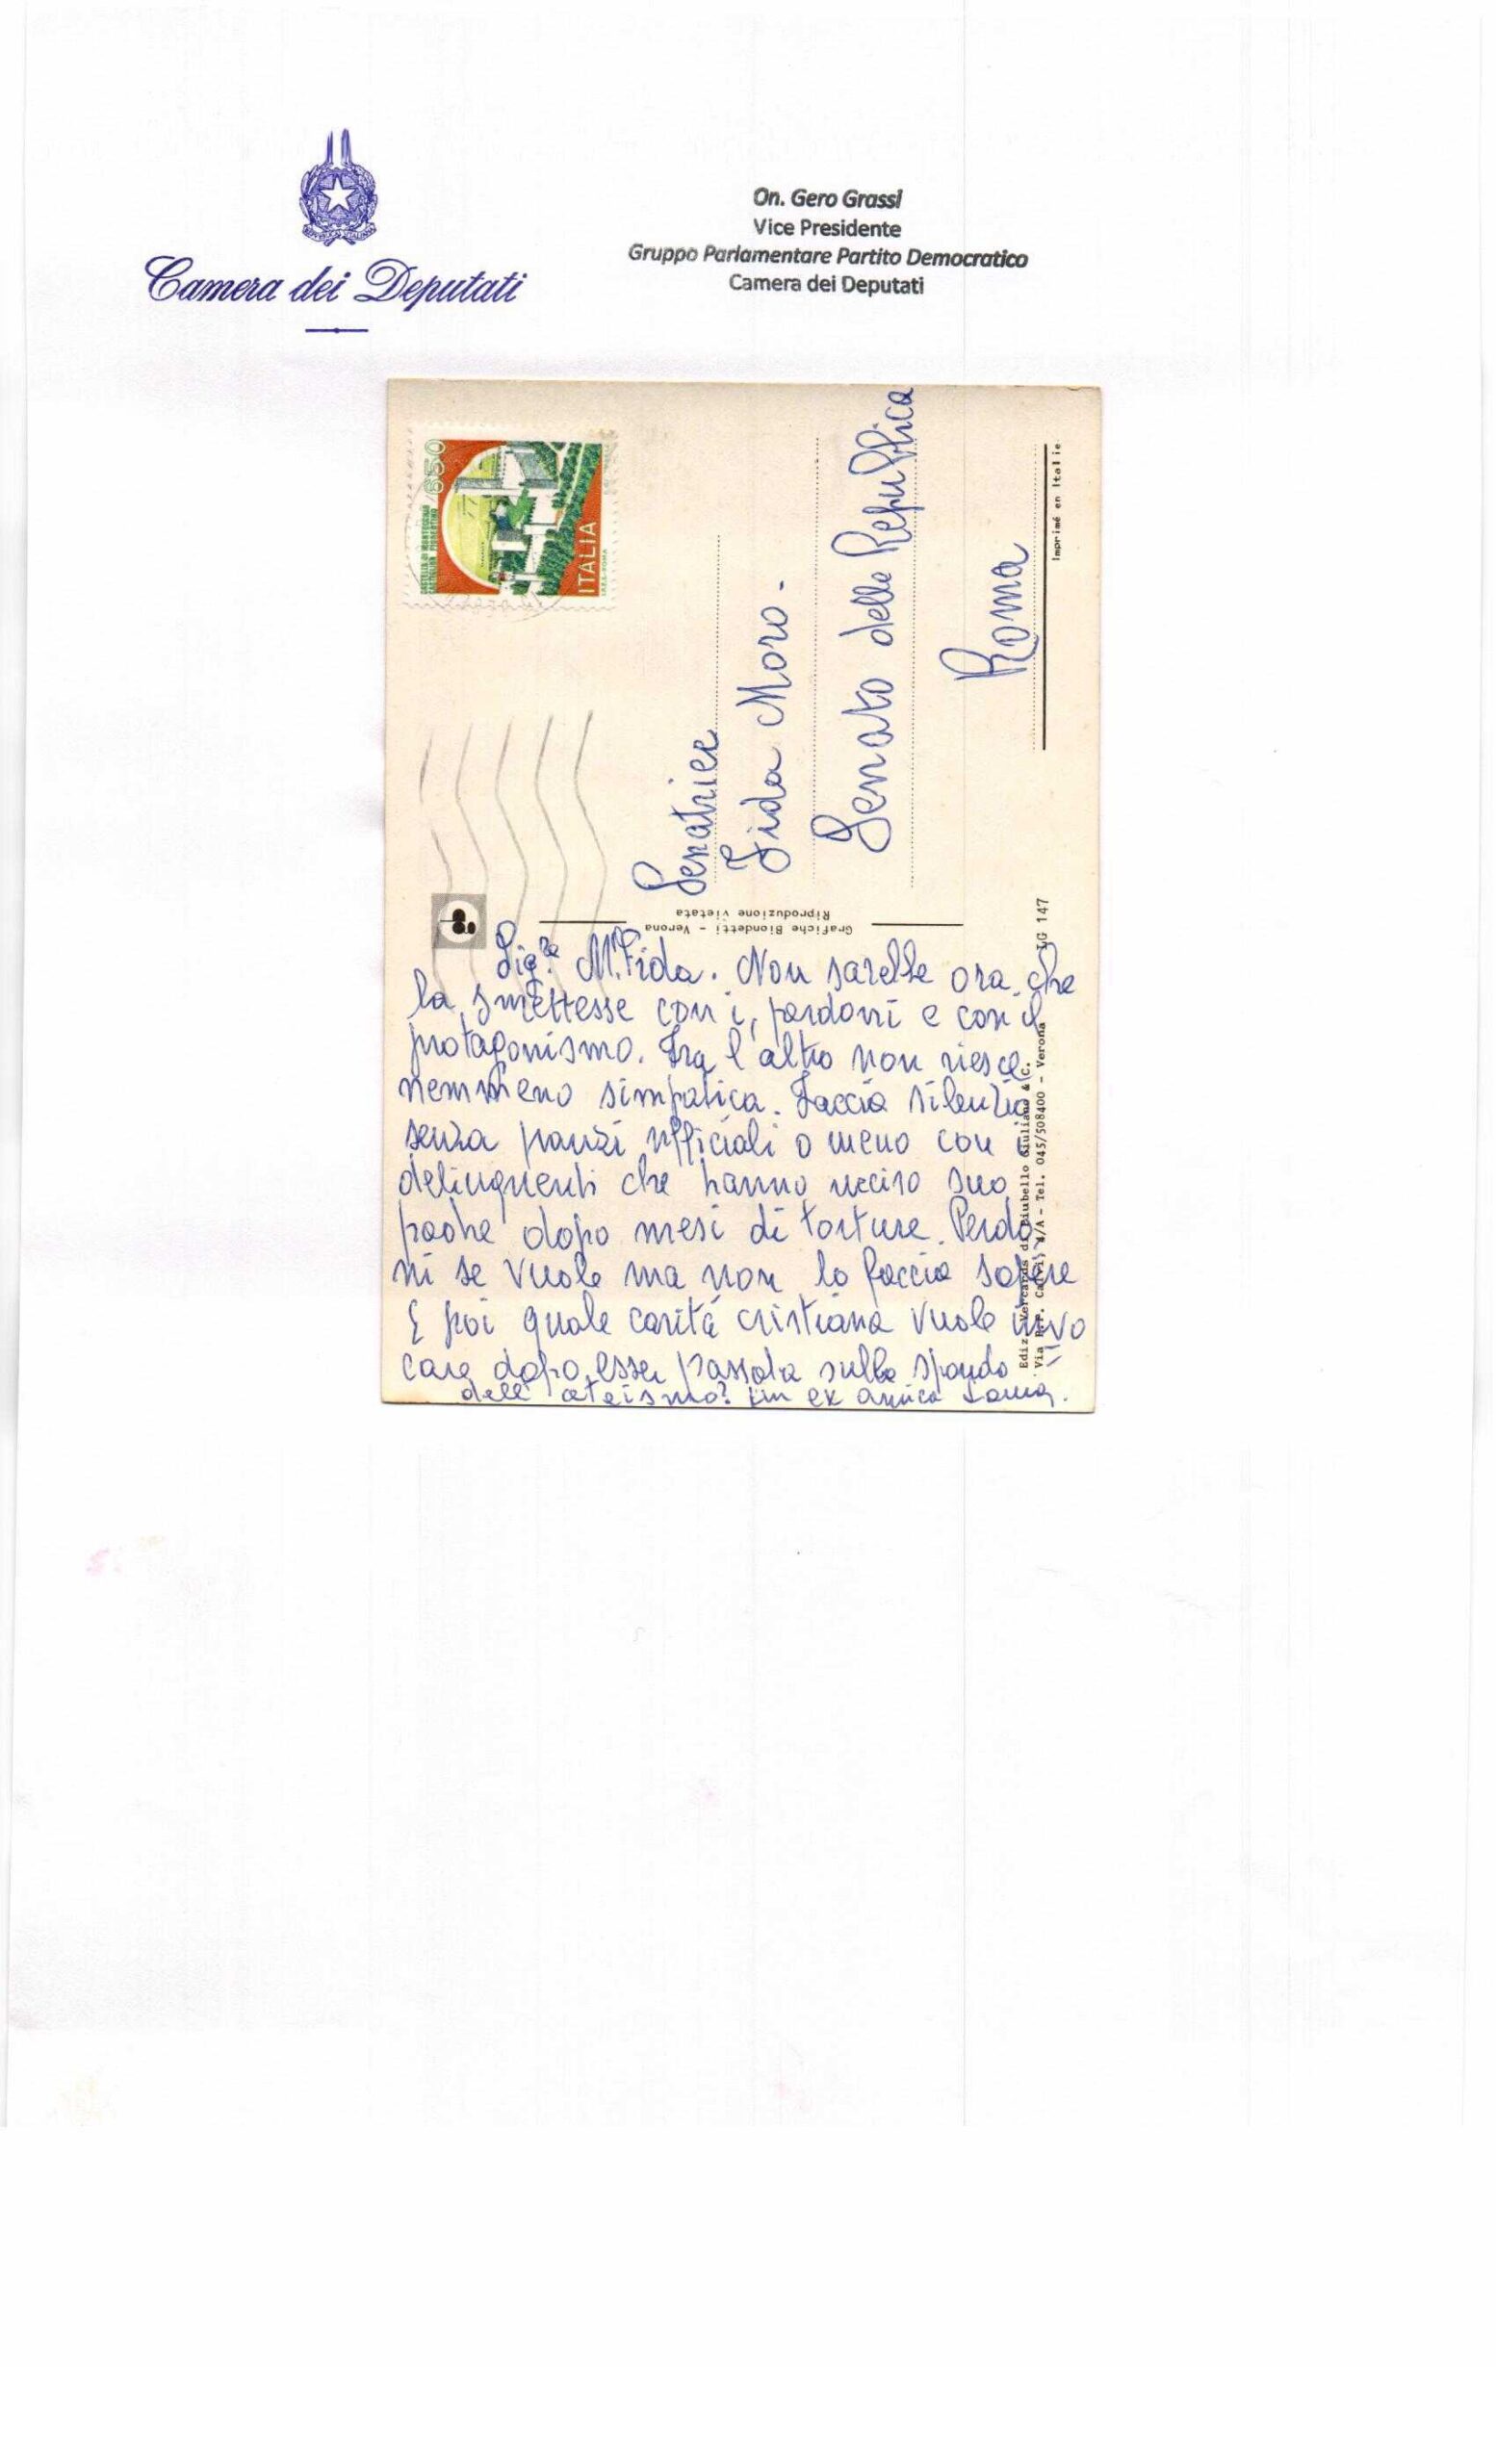 Camera dei Deputati
On. Gero Grassi
Vice Presidente
Gruppo Parlamentare Partito Democratico
Camera dei Deputati
650
ITALIA
Senatrice
Fida Moro.
Senato della Repubblica
Roma
Imprimé en Italie
Grafiche Biondetti - Verona
Riproduzione vietata
LG 147
Via Calvi, /A - Tel. 045/508400 - Verona
Sig.ra M. Fida. Non sarebbe ora che
la smettesse con i perdoni e con il
protagonismo. Tra l'altro non riesce
nemmeno simpatica. Faccia silenzio
senza pranzi ufficiali o meno con i
delinquenti che hanno ucciso suo
padre dopo mesi di torture. Perdo
ni se vuole ma non lo faccia sapere
E poi quale carità cristiana vuole invo
care dopo esser passata sulla sponda
dell'ateismo? un ex amica